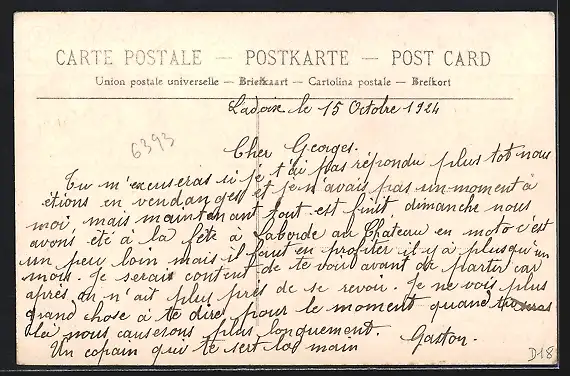 CARTE POSTALE — POSTKARTE — POST CARD
Union postale universelle — Briefkaart — Cartolina postale — Brefkort
Ladoix le 15 Octobre 1924
6393
Cher Georges.
Tu m'excuseras si je t'ai pas répondu plus tot nous
étions en vendanges et je n'avais pas un moment à
moi, mais maintenant tout est finit dimanche nous
avons été à la fête à Laborde au Château en moto c'est
un peu loin mais il faut en profiter il y à plusqu'un
mois. Je serais content de te voir avant de partir car
après on n'ait plus près de se revoir. Je ne vois plus
grand chose à te dire pour le moment quand tu seras
ici nous causerons plus longuement.
Un copain qui te sert la main Gaston.
D18